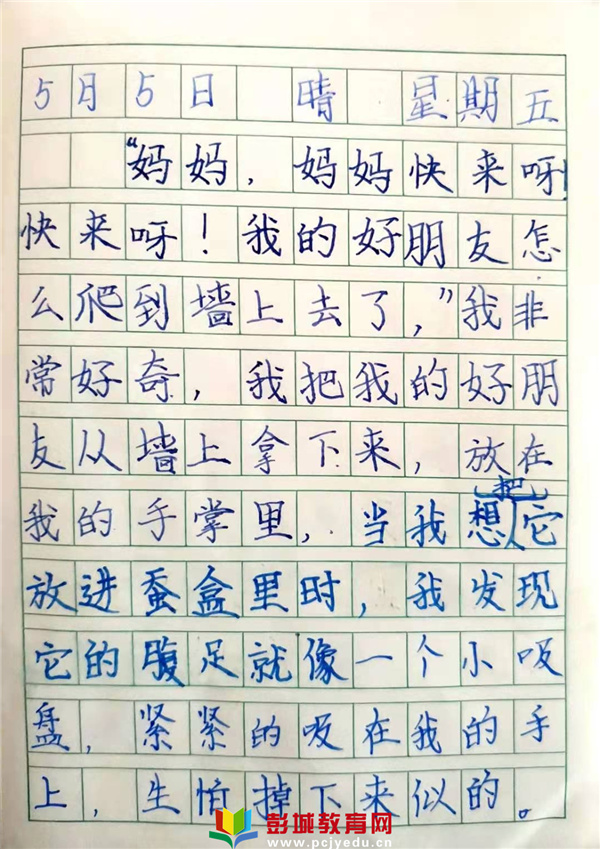 5月5日 晴 星期五
“妈妈，妈妈快来呀！
快来呀！我的好朋友怎
么爬到墙上去了，”我非
常好奇，我把我的好朋
友从墙上拿下来，放在
把
我的手掌里，当我想它
放进蚕盒里时，我发现
它的腹足就像一个小吸
盘，紧紧的吸在我的手
上，生怕掉下来似的。
彭城教育网
www.pcjyedu.cn